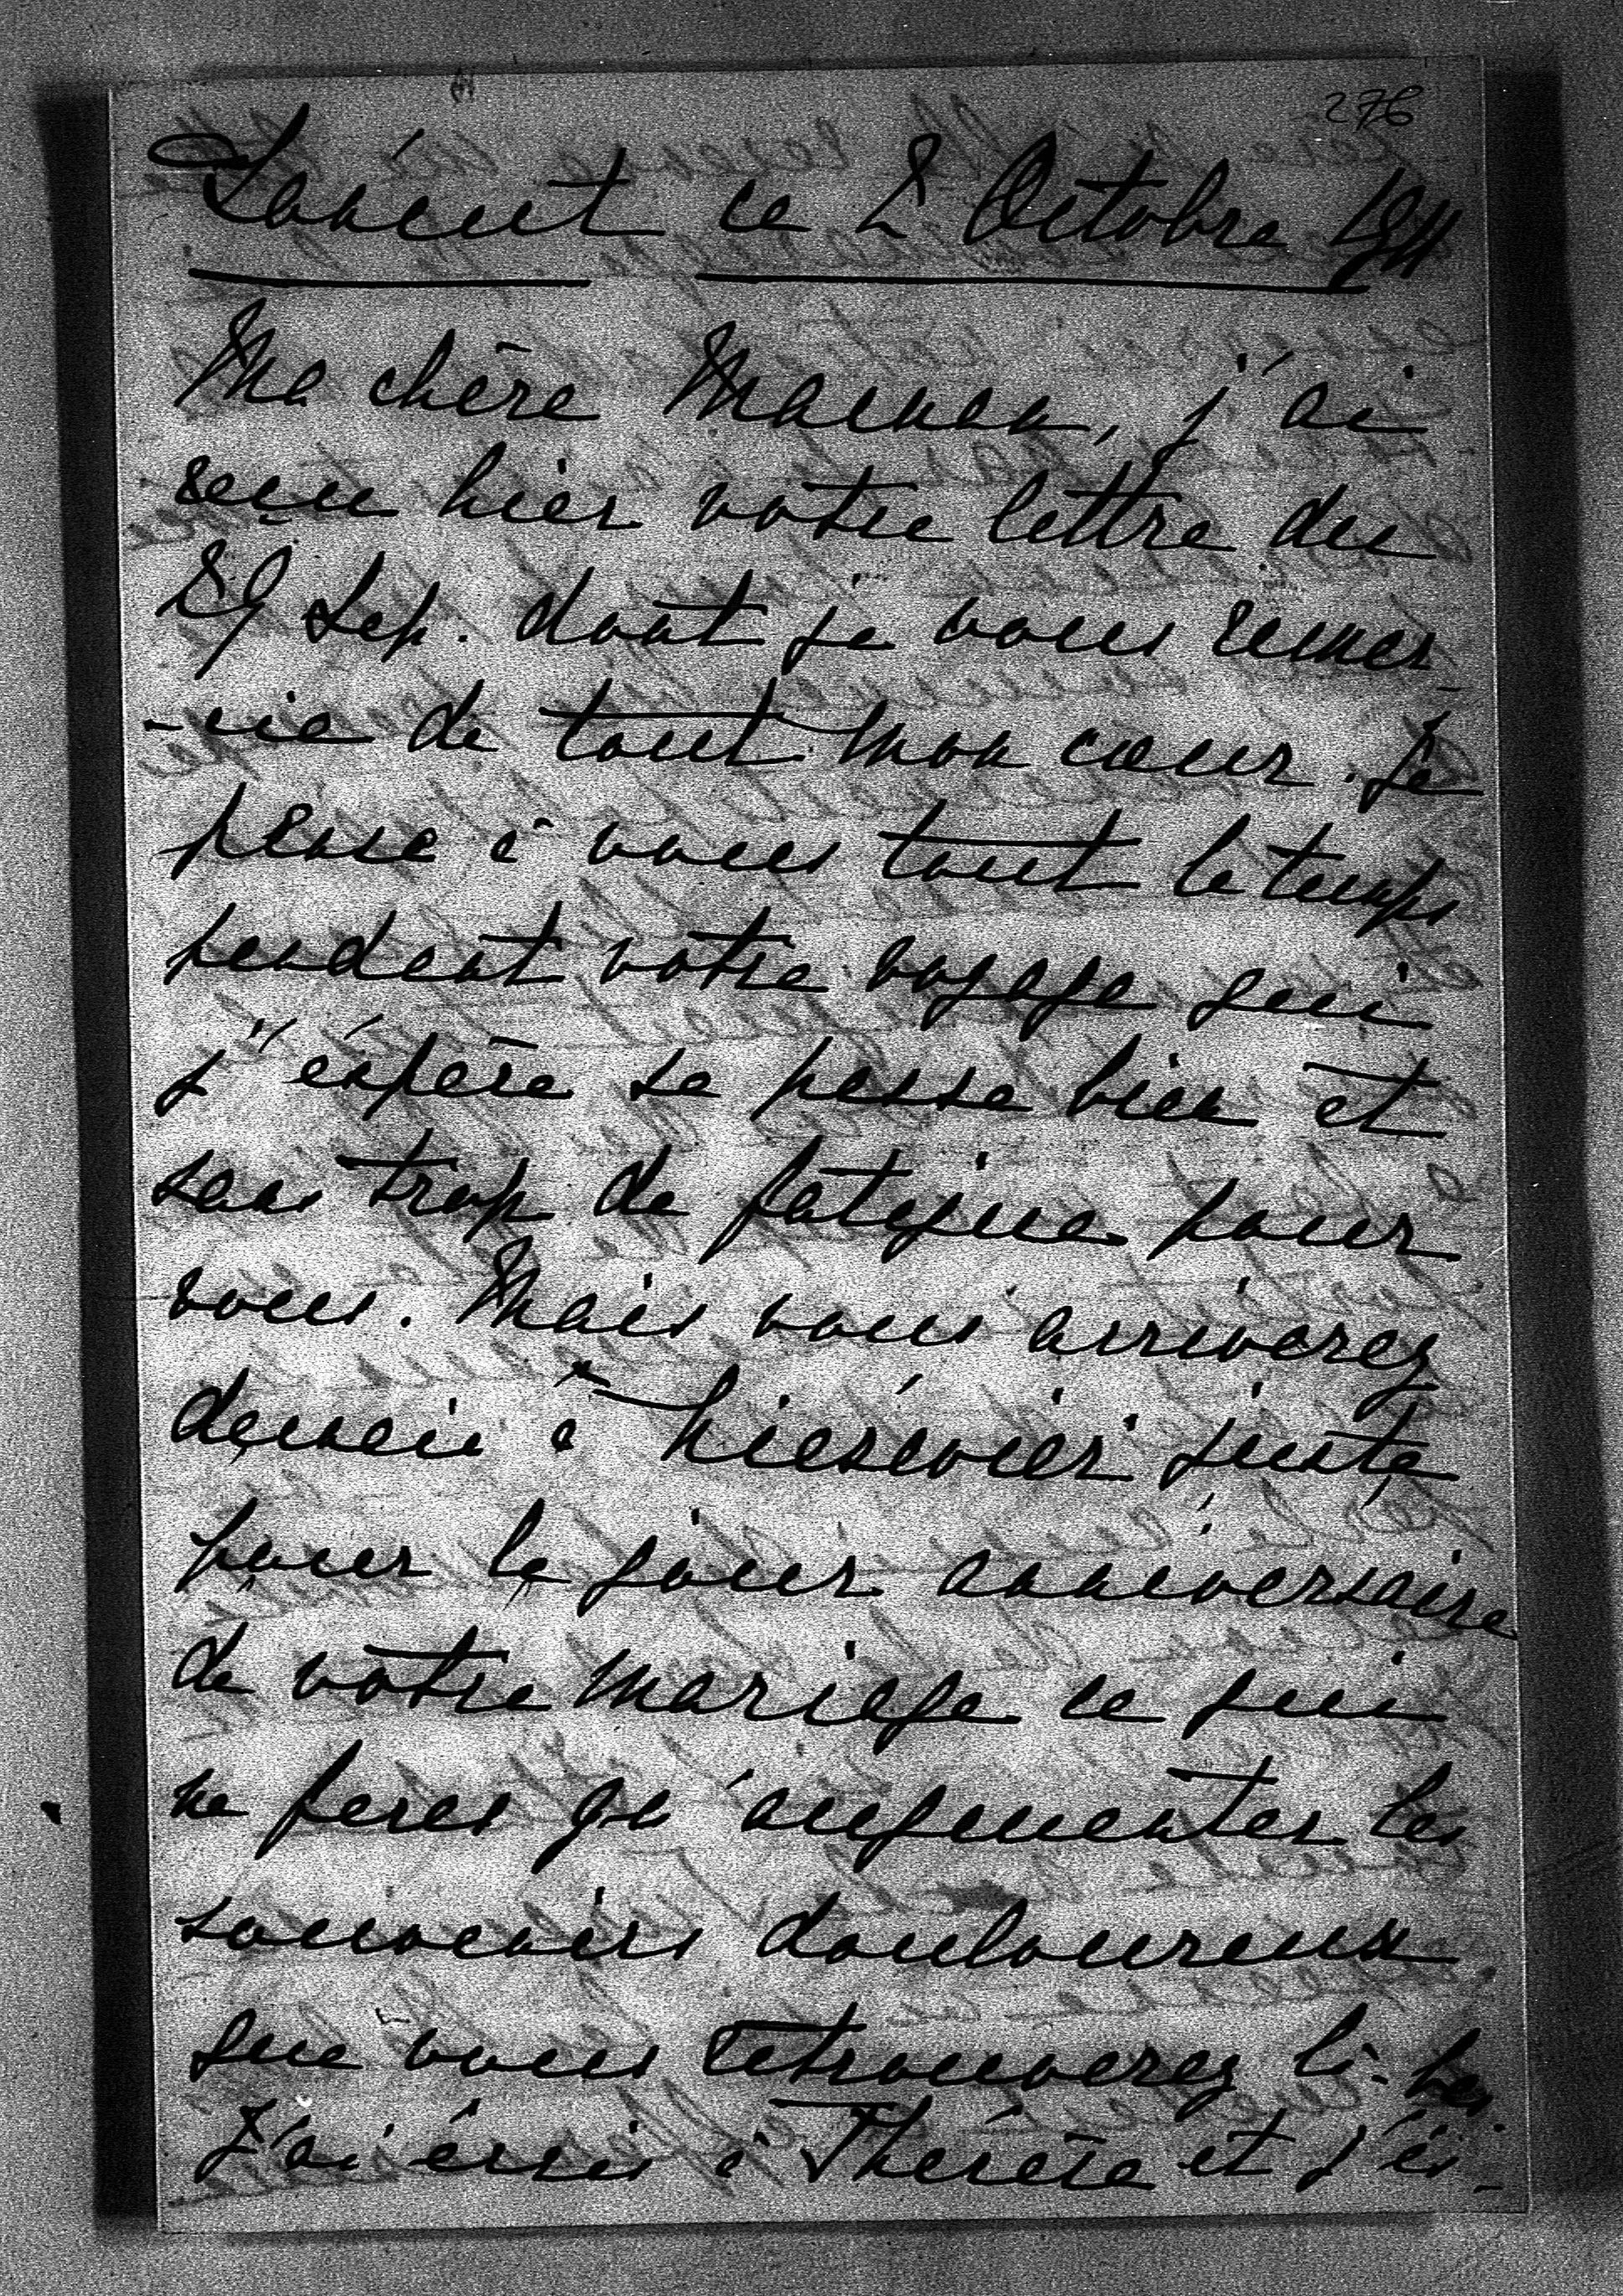 276
Lorient ce 2 Octobre 1911
Ma chère Maman, j'ai
reçu hier votre lettre du
29 Sep. dont je vous remer-
-cie de tout mon cœur. Je
pense à vous tout le temps
pendant votre voyage qui
j'éspère se passe bien et
sans trop de fatigue pour
vous. Mais vous arriverez
demain à juste
pour le jour anniversaire
de votre mariage ce qui
ne feras qu'augmenter les
souvenirs douloureux
que vous retrouverez là-bas.
J'ai écris à Thérèse et j'és-